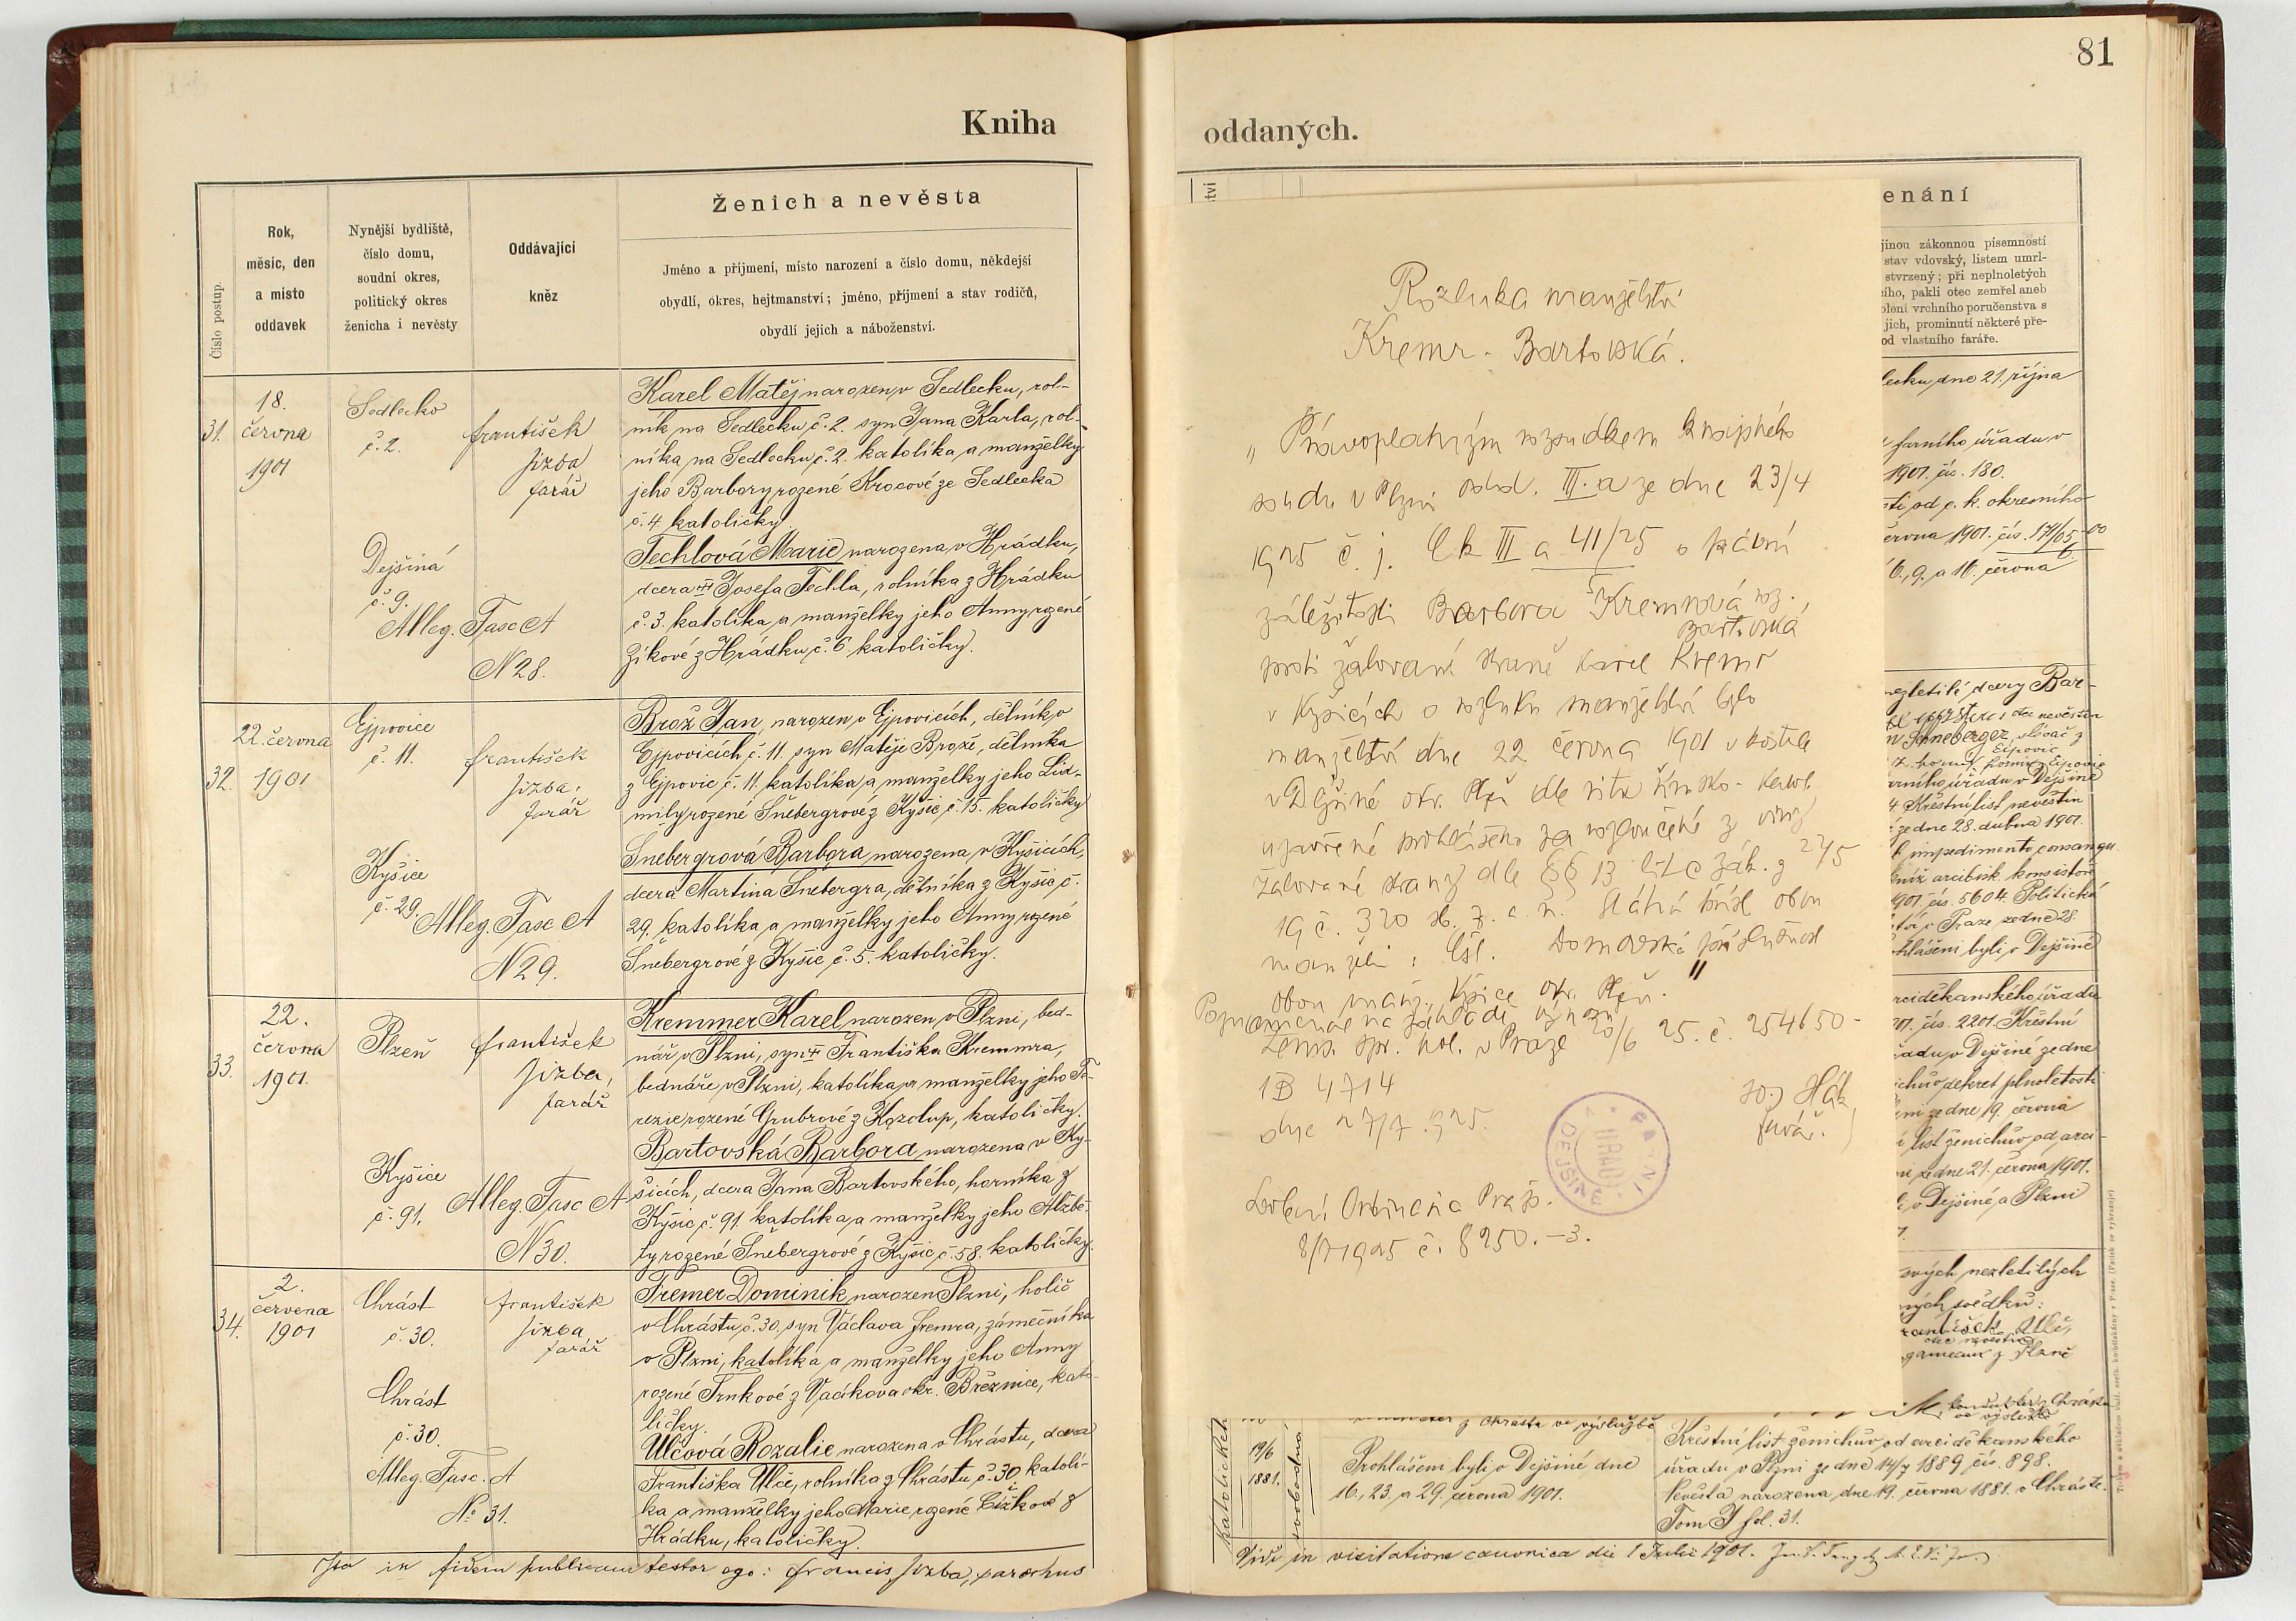 81
Kniha
oddaných.
Číslo postup.
Rok,
měsíc, den
a místo
oddavek
Nynější bydliště,
číslo domu,
soudní okres,
politický okres
ženicha i nevěsty
Oddávající
kněz
Ženich a nevěsta
Jméno a příjmení, místo narození a číslo domu, někdejší
obydlí, okres, hejtmanství; jméno, příjmení a stav rodičů,
obydlí jejich a náboženství.
31.
18.
června
1901
Sedlecko
č. 2.
František
Jizba
farář
Karel Matěj narozen v Sedlecku, rol-
ník na Sedlecku č. 2. syn Jana Karla, rol-
níka na Sedlecku č. 2. katolíka a manželky
jeho Barbory rozené Krocové ze Sedlecka
č. 4. katoličky.
Dejšina
č. 9.
Alleg. Fasc A
N 28.
Techlová Marie narozena v Hrádku,
dcera Josefa Techla, rolníka z Hrádku
č. 3. katolíka a manželky jeho Anny rozené
Zikové z Hrádku č. 6. katoličky.
32.
22. června
1901
Ejpovice
č. 11.
František
Jizba,
farář
Brož Jan, narozen v Ejpovicích, dělník v
Ejpovicích č. 11. syn Matěje Brože, dělníka
z Ejpovic č. 11. katolíka a manželky jeho Lud-
mily rozené Šnebergrové z Kyšic, č. 15. katoličky
Kyšice
č. 29.
Alleg. Fasc A
N 29.
Šnebergrová Barbora narozena v Kyšicích,
dcera Martina Šnebergra, dělníka z Kyšic, č.
29. katolíka a manželky jeho Anny rozené
Šnebergrové z Kyšic č. 5. katoličky.
33.
22.
června
1901.
Plzeň
František
Jizba,
farář
Kremmer Karel narozen v Plzni, bed-
nář v Plzni, syn Františka Kremmra,
bednáře v Plzni, katolíka a manželky jeho Te-
rezie rozené Grubrové z Kozolup, katoličky.
Kyšice
č. 91.
Alleg. Fasc A
N 30.
Bartovská Barbora narozena v Ky-
šicích, dcera Jana Bartovského, horníka z
Kyšic č. 91. katolíka a manželky jeho Alžbě-
ty rozené Šnebergrové z Kyšic, č. 58. katoličky.
34.
2.
července
1901
Chrást
č. 30.
František
Jizba
farář
Fremer Dominik narozen Plzni, holič
v Chrástu č. 30. syn Václava Fremra, zámečníka
v Plzni, katolíka a manželky jeho Anny
rozené Trnkové z Vacíkova okr. Březnice, kato-
ličky.
Chrást
č. 30.
Alleg. Fasc. A
No 31.
Ulčová Rozalie narozena v Chrástu, dcera
Františka Ulče, rolníka z Chrástu č. 30. katolí-
ka a manželky jeho Marie rozené Čížkové z
Hrádku, katoličky.
in fidem publicam testor ego: Francis. Jizba, parochus
tví
enání
jinou zákonnou písemností
stav vdovský, listem umrl-
stvrzený; při neplnoletých
ího, pakli otec zemřel aneb
olení vrchního poručenstva s
jich, prominutí některé pře-
od vlastního faráře.
Rozluka manželství
Kremr - Bartovská.
„Právoplatným rozsudkem krajského
soudu v Plzni odd. III. a ze dne 23/4
1925 č. j. Ck III a 41/25 o právní
záležitosti Barbora Kremrová roz.
Bartovská
proti žalované straně Karel Kremr
v Kyšicích o rozluku manželství bylo
manželství dne 22. června 1901 v kostele
v Dejšině okr. Plzeň dle ritu římsko-katol.
uzavřené prohlášeno za rozloučené z viny
žalované strany dle §§ 13 lit c zák. z 22/5
19 č. 320 sb. z. a n. Státní přísl. obou
manželů: čsl. Domovská příslušnost
obou manž. Kyšice okr. Plzeň."
Poznamenáno na základě výnosu
Zemsk. spr. pol. v Praze 20/6 25. č. 254650-
1B 4714
dne 27/7 1925.
Jos. Hák,
farář.
FARNÍ
ÚŘAD
DEJŠINĚ
8/7 1925 č. 8250.-3.
lecku dne 21. října
farního úřadu v
1901. čís. 180.
sti od c. k. okresního
června 1901. čís. 171/05
6., 9. a 16. června
nezletilé dcery Bar-
4 Křestní list nevěstin
ze dne 28. dubna 1901.
impedimento consangu.
kníž. arcibisk. konsistoř
1901. čís. 5604. Politická
v Praze ze dne 28.
ohlášeni byli v Dejšině
rciděkanského úřadu
01. čís. 2201. Křestní
řadu v Dejšině ze dne
ichův dekret plnoletosti
ze dne 19. června
list ženichův od arci-
ze dne 21. června 1901.
v Dejšině a Plzni
svých nezletilých
ných svědků:
František Ulč,
otec nevěstin
z Plzně
katolické
19/6
1881.
svobodná
z Chrásta ve výslužbě
Prohlášeni byli v Dejšině dne
16., 23. a 29. června 1901.
Křestní list ženichův od arciděkanského
úřadu v Plzni ze dne 14/7 1889 čís. 898.
Nevěsta narozena dne 19. června 1881. v Chrástě.
Tom I fol. 31.
Vidi in visitatione canonica die 1 Julii 1901.